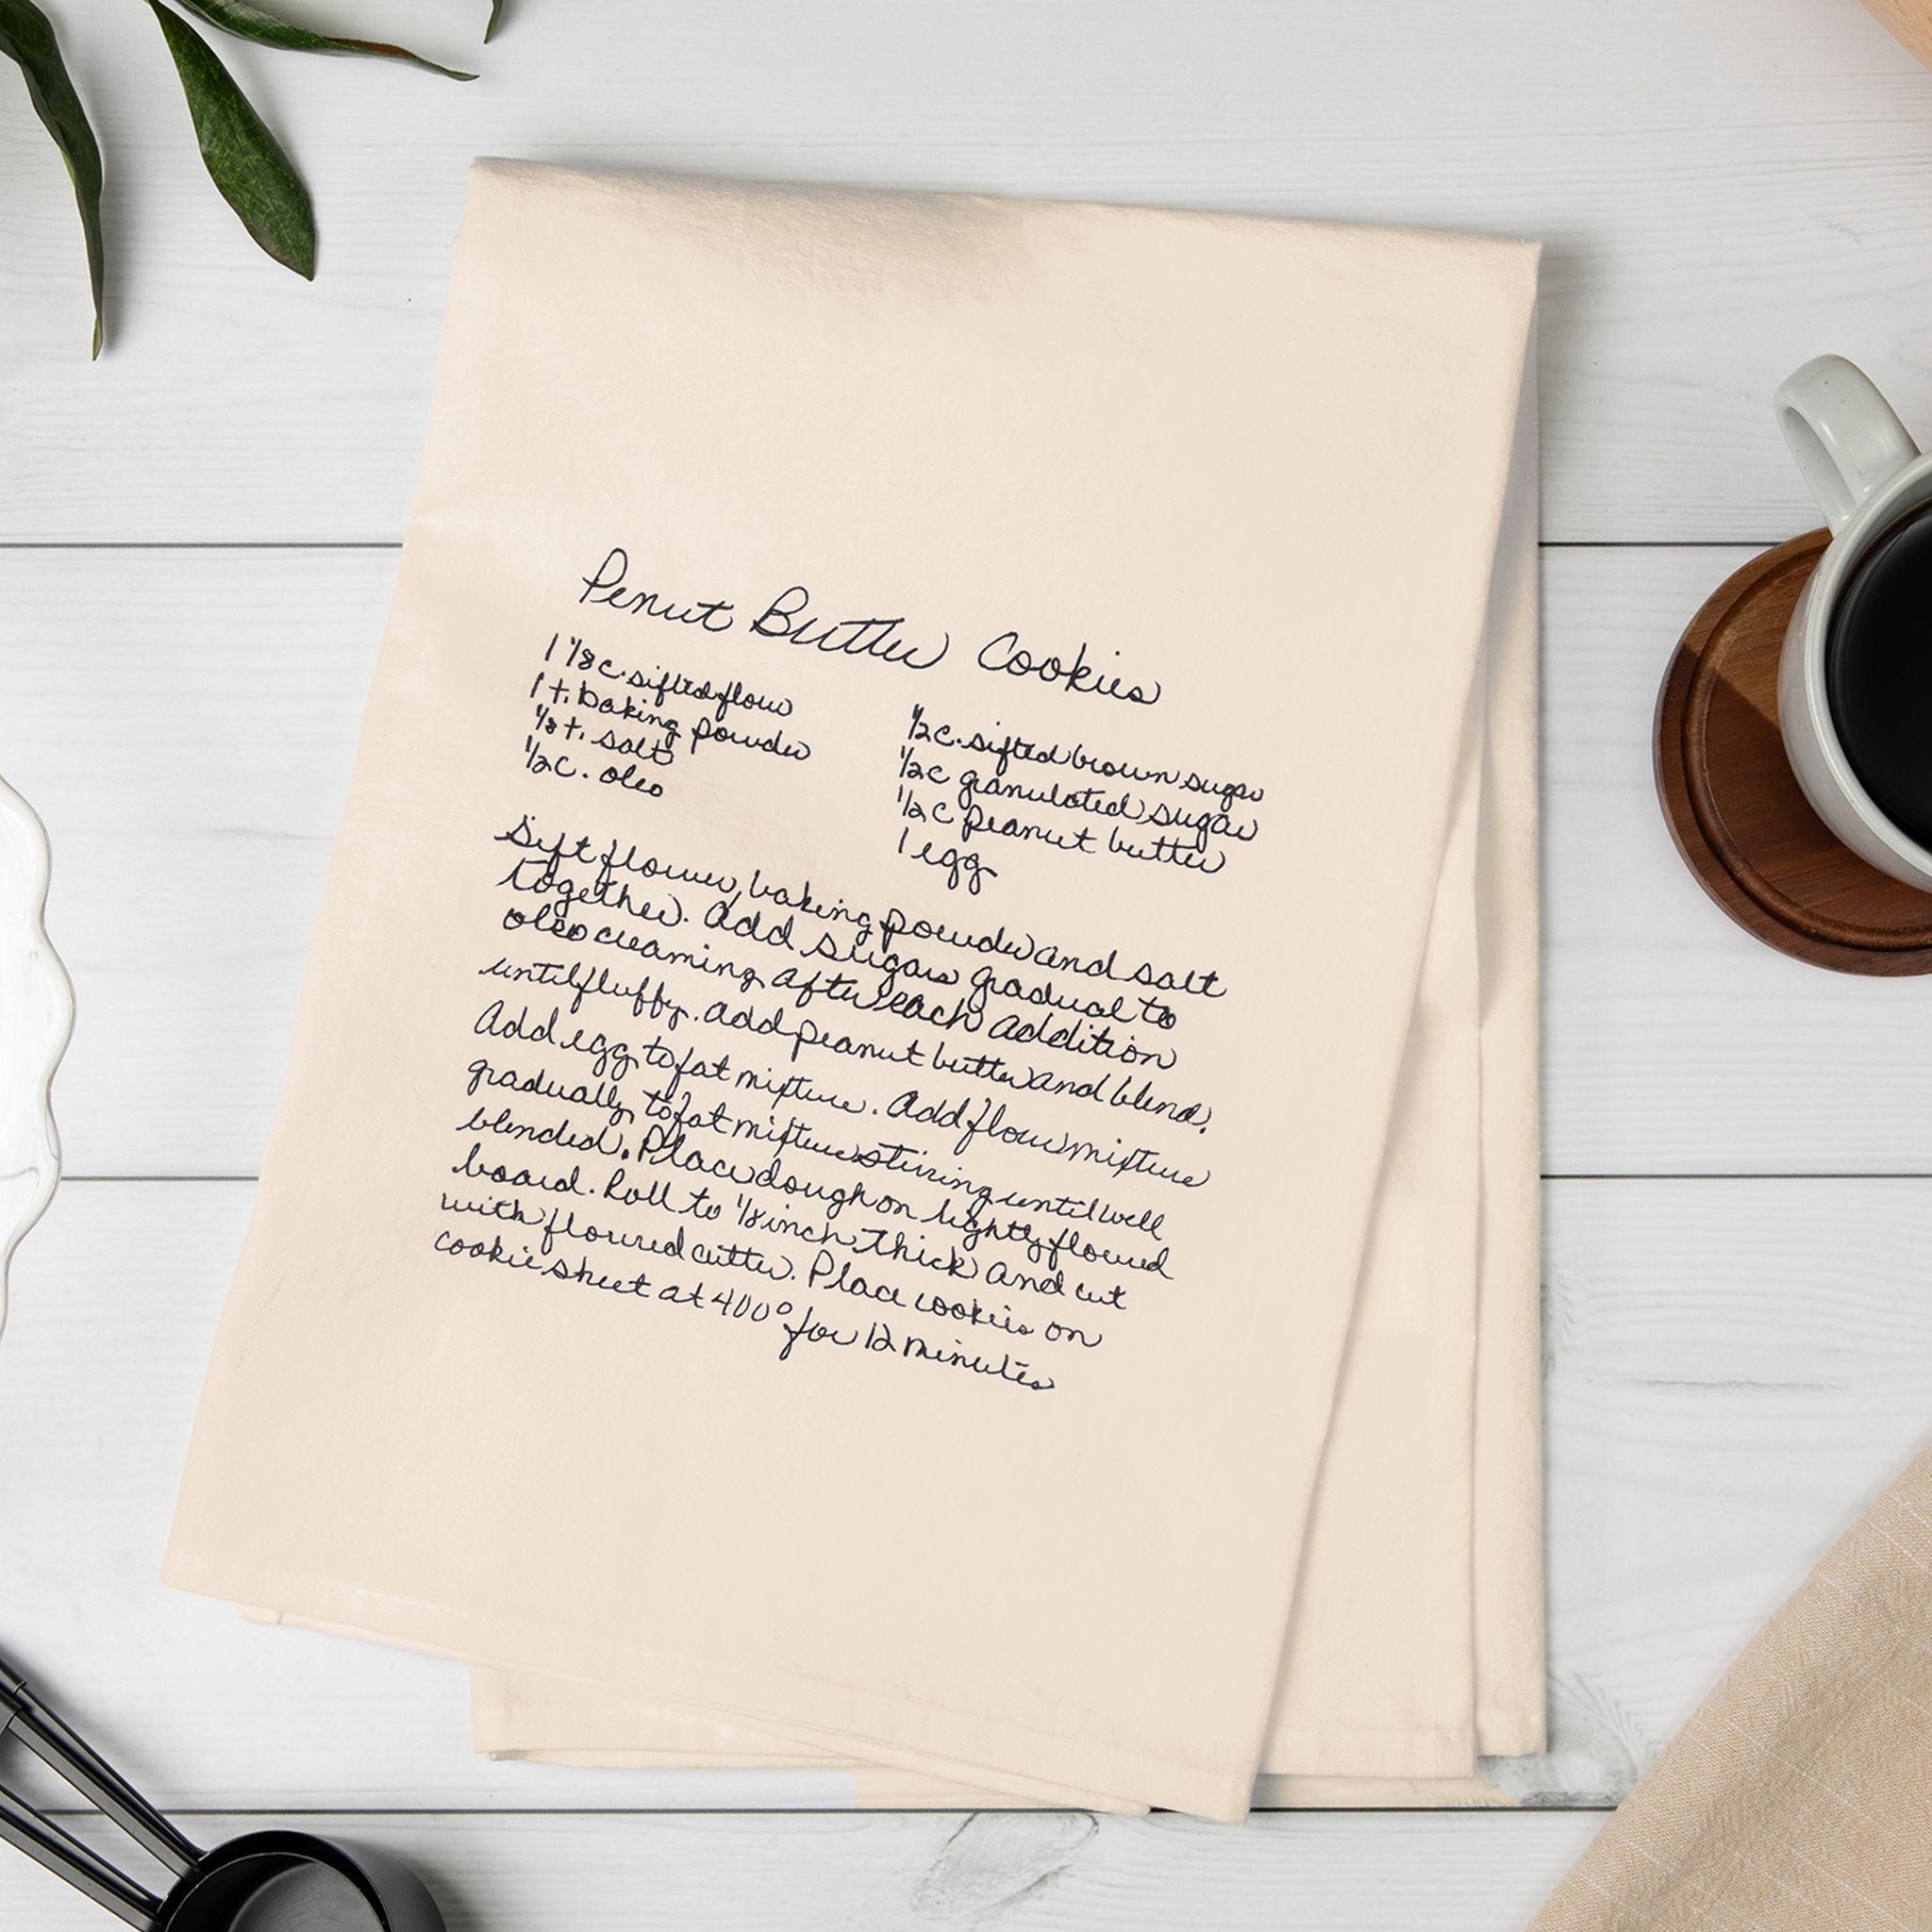 Penut Butter Cookies
1 1/8 c. sifted flour
1 t. baking powder
1/8 t. salt
1/2 c. oleo
1/2 c. sifted brown sugar
1/2 c granulated sugar
1/2 c peanut butter
1 egg
Sift flower, baking powder and salt
together. Add sugars gradual to
oleo creaming after each addition
until fluffy. Add peanut butter and blend.
Add egg to fat mixture. Add flour mixture
gradually to fat mixture stirring until well
blended. Place dough on lightly floured
board. Roll to 1/8 inch thick and cut
with floured cutter. Place cookies on
cookie sheet at 400° for 12 minutes